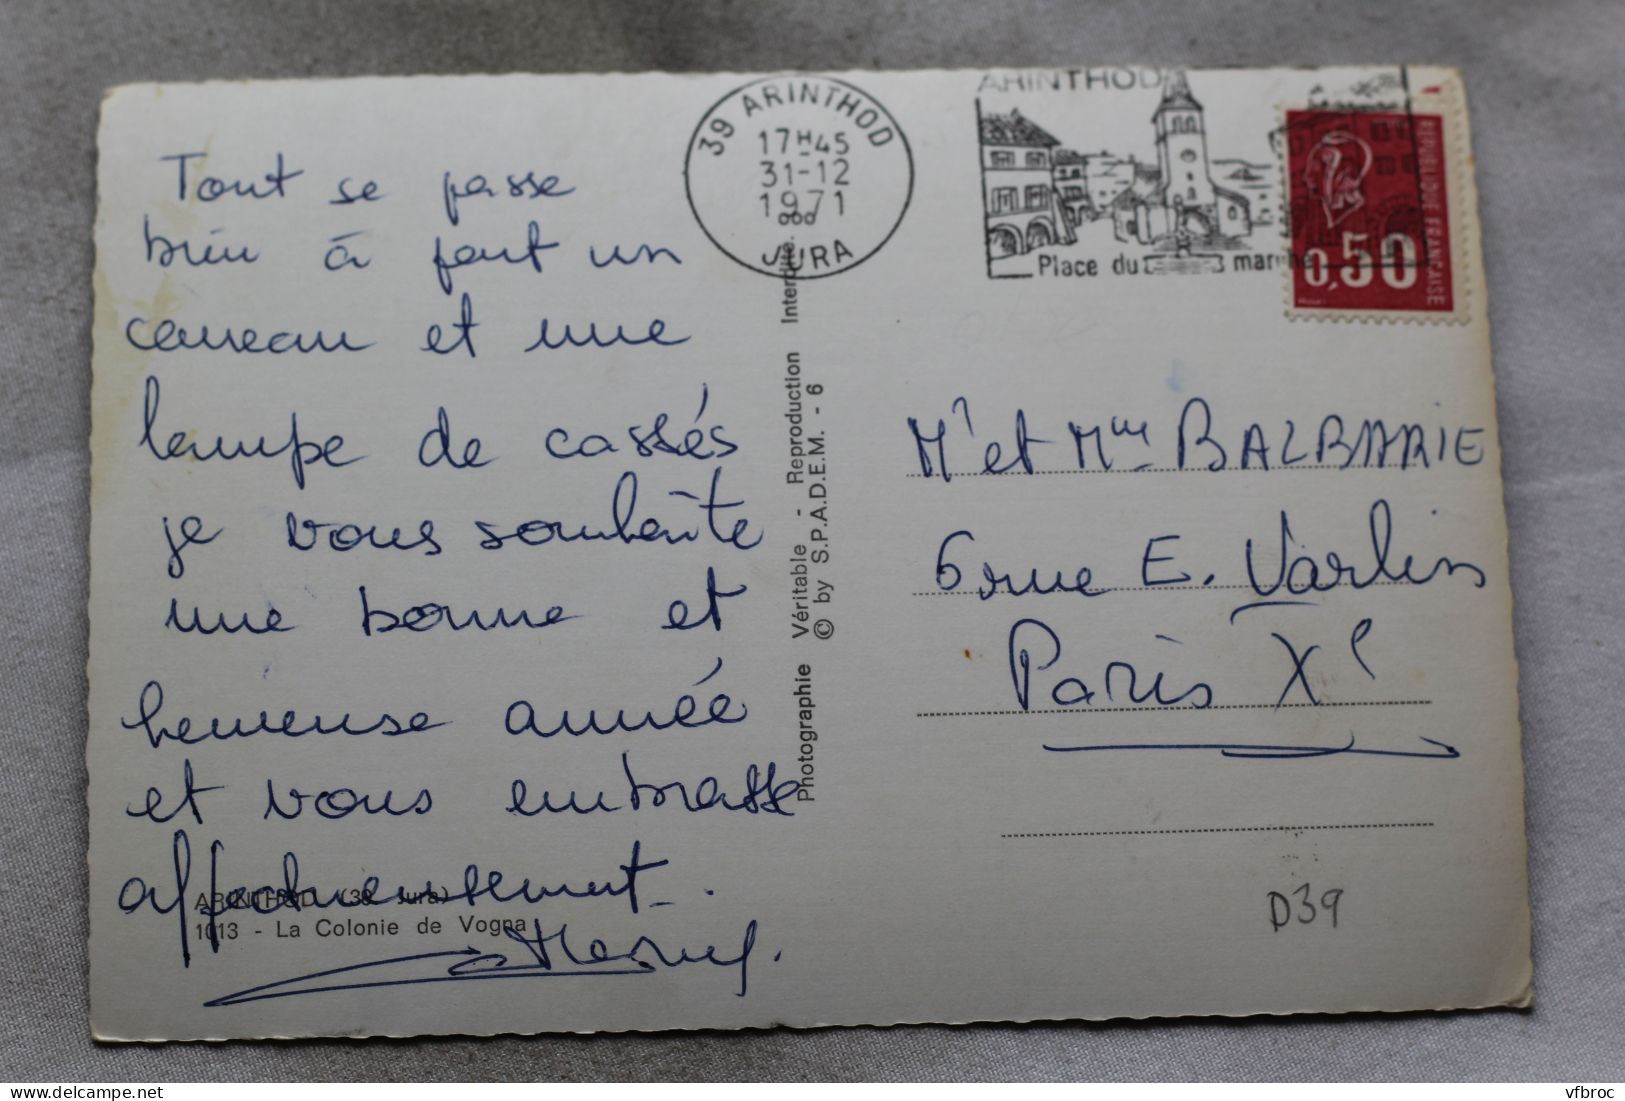 Tout se passe
bien à part un
carreau et une
lampe de cassés
je vous souhaite
une bonne et
heureuse année
et vous embrasse
affectueusement.
ARINTHOD (39 Jura)
1013 - La Colonie de Vogna
Photographie Véritable - Reproduction Interdite.
© by S.P.A.D.E.M. - 6
39 ARINTHOD
17H45
31-12
1971
JURA
ARINTHOD
Place du marché
REPUBLIQUE FRANÇAISE
0,50
Mr et Mme BALBARIE
6 rue E. Varlin
Paris Xe
D39
vfbroc